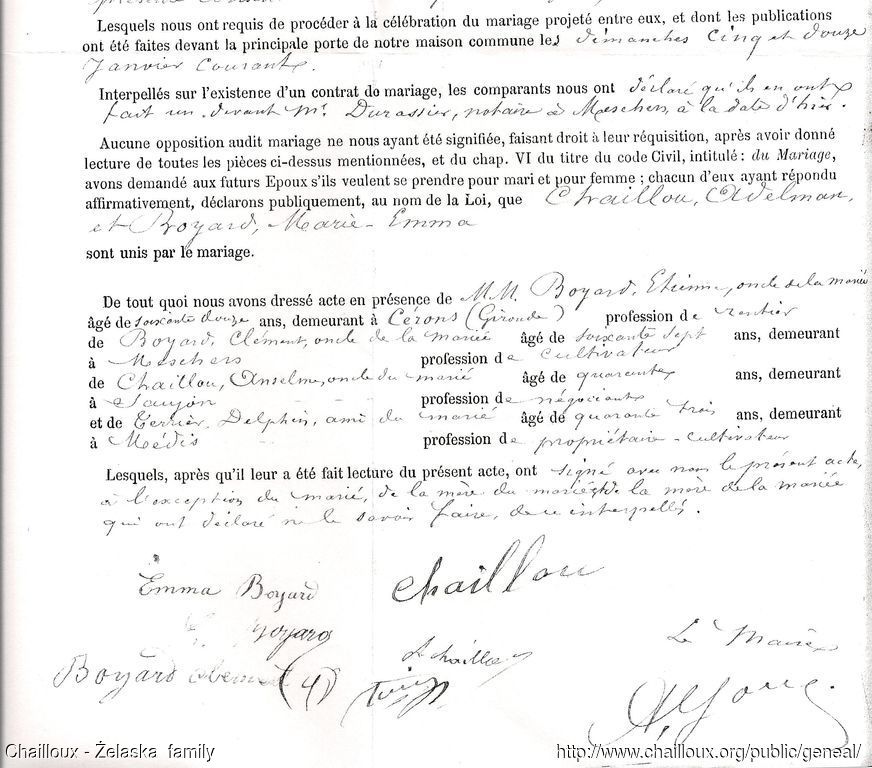 Lesquels nous ont requis de procéder à la célébration du mariage projeté entre eux, et dont les publications
ont été faites devant la principale porte de notre maison commune les dimanches cinq et douze
Janvier courant.
Interpellés sur l'existence d'un contrat de mariage, les comparants nous ont déclaré qu'ils en ont
fait un devant Mr. Durassier, notaire à Meschers, à la date d'hier.
Aucune opposition audit mariage ne nous ayant été signifiée, faisant droit à leur réquisition, après avoir donné
lecture de toutes les pièces ci-dessus mentionnées, et du chap. VI du titre du code Civil, intitulé : du Mariage,
avons demandé aux futurs Epoux s'ils veulent se prendre pour mari et pour femme ; chacun d'eux ayant répondu
affirmativement, déclarons publiquement, au nom de la Loi, que Chaillou, Adelman,
et Boyard, Marie-Emma
sont unis par le mariage.
De tout quoi nous avons dressé acte en présence de MM. Boyard, Etienne, oncle de la mariée
âgé de soixante douze ans, demeurant à Cérons (Gironde) profession de rentier
de Boyard, Clément, oncle de la mariée âgé de soixante sept ans, demeurant
à Meschers profession de cultivateur
de Chaillou, Anselme, oncle du marié âgé de quarante ans, demeurant
à Saujon profession de négociant
et de Terrier, Delphin, ami du marié âgé de quarante trois ans, demeurant
à Médis profession de propriétaire-cultivateur
Lesquels, après qu'il leur a été fait lecture du présent acte, ont signé avec nous le présent acte,
à l'exception du marié, de la mère du marié et de la mère de la mariée
qui ont déclaré ne le savoir faire, de ce interpellés.
Emma Boyard Chaillou
Boyard
Le Maire
A Chaillou
Boyard Clement (4)
Chailloux - Żelaska family http://www.chailloux.org/public/geneal/